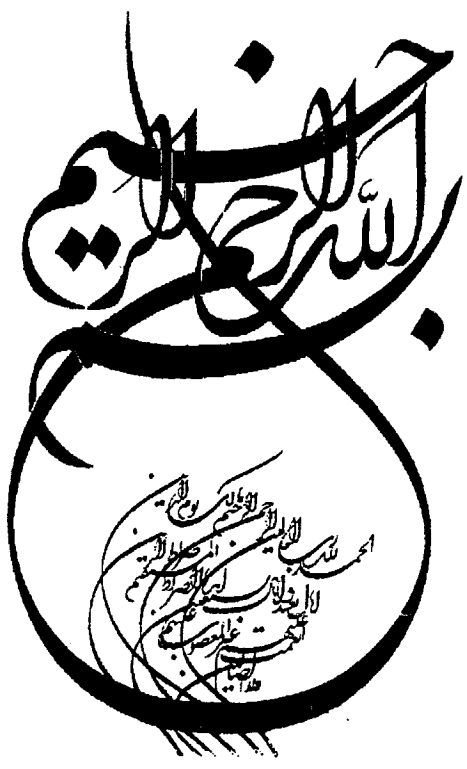 بسم الله الرحمن الرحيم
الحمد لله رب العالمين
الرحمن الرحيم
مالك يوم الدين
اياك نعبد و اياك نستعين
اهدنا الصراط المستقيم
صراط الذين انعمت عليهم
غير المغضوب عليهم
ولا الضالين